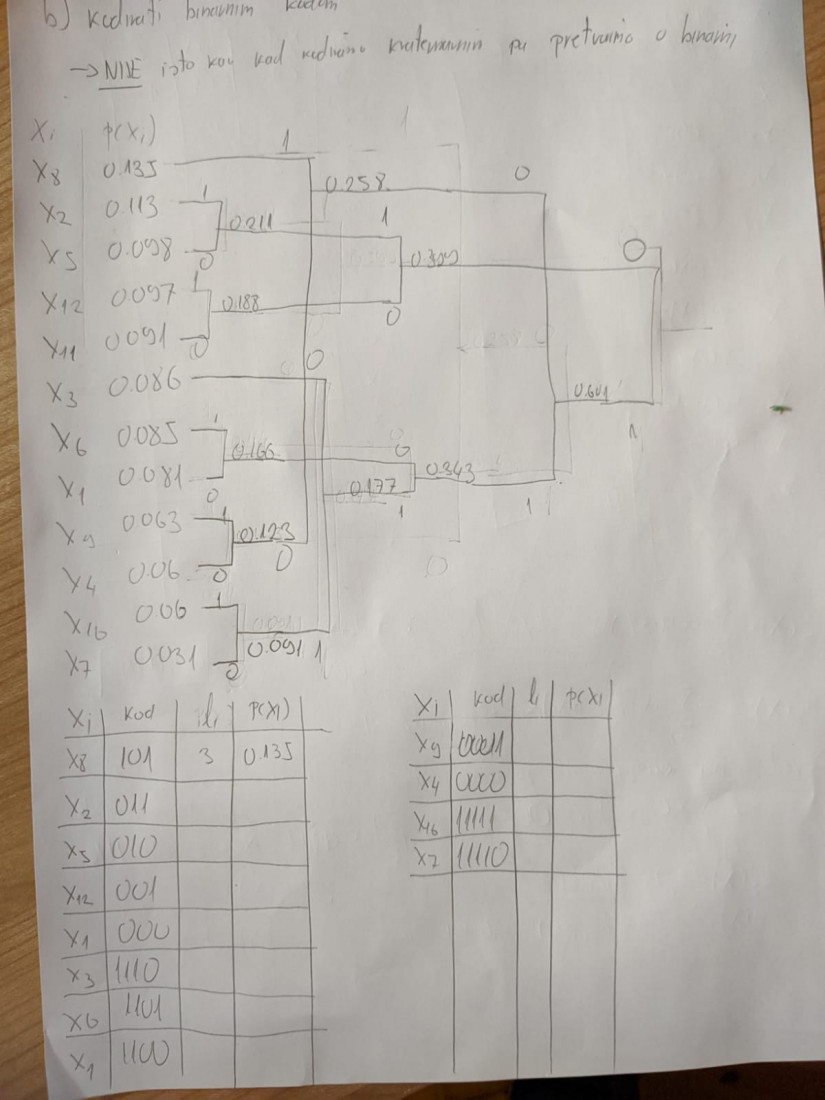 b) kodirati binarnim kodom
→ NIJE isto kao kod kodirano pa pretvorimo u binarni
Xi p(Xi)
X8 0.135
X2 0.113
X5 0.098
X12 0.097
X11 0.091
X3 0.086
X6 0.085
X1 0.081
X9 0.063
X4 0.06
X10 0.06
X7 0.031
1 0.258 0
1 0.211 1
0 0.399 0
1 0.188 0
0
0
1 0.166 0 0.343 1
0 0.177 1
0.601 1
1 0.123 0
0
1 0.091 1
0
Xi kod li p(Xi)
X8 101 3 0.135
X2 011
X5 010
X12 001
X1 000
X3 1110
X6 1101
X1 1100
Xi kod li p(Xi
X9
X4
X16 11111
X7 11110